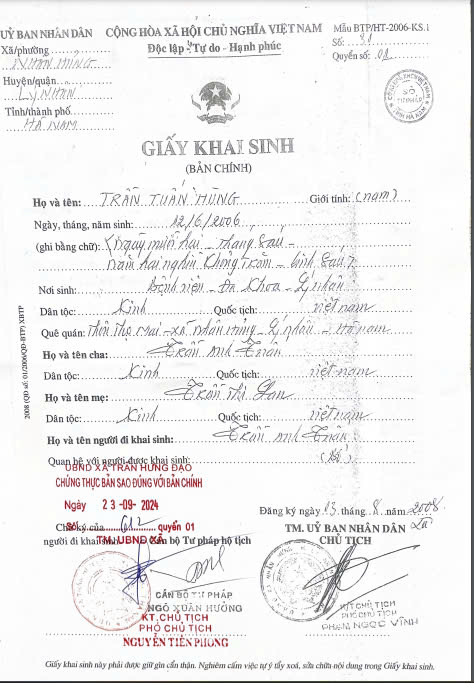 ỦY BAN NHÂN DÂN
CỘNG HÒA XÃ HỘI CHỦ NGHĨA VIỆT NAM
Độc lập - Tự do - Hạnh phúc
Mẫu BTP/HT-2006-KS.1
Xã/phường
NHÂN HƯNG
Huyện/quận
LÝ NHÂN
Tỉnh/thành phố
HÀ NAM
Số: 31
Quyển số: 01
GIẤY KHAI SINH
(BẢN CHÍNH)
Họ và tên: TRẦN TUẤN HÙNG Giới tính: (nam)
Ngày, tháng, năm sinh: 12/6/2006
(ghi bằng chữ): (Ngày mười hai - tháng sáu -
năm hai nghìn không trăm - linh sáu)
Nơi sinh: Bệnh viện - Đa Khoa - Lý Nhân
Dân tộc: Kinh Quốc tịch: việt nam
Quê quán: Thôn Thọ Mai - xã Nhân Hưng - Lý Nhân - Hà nam
Họ và tên cha: Trần Anh Tuấn
Dân tộc: Kinh Quốc tịch: việt nam
Họ và tên mẹ: Trần Thị Lan
Dân tộc: Kinh Quốc tịch: việt nam
Họ và tên người đi khai sinh: Trần Anh Tuấn
Quan hệ với người được khai sinh: (Bố)
UBND XÃ TRẦN HƯNG ĐẠO
CHỨNG THỰC BẢN SAO ĐÚNG VỚI BẢN CHÍNH
Ngày 23-09-2024
Số 612 quyển 01
TM. UBND XÃ
Đăng ký ngày 13 tháng 8 năm 2008
Chữ ký của
người đi khai sinh
Cán bộ Tư pháp hộ tịch
TM. UỶ BAN NHÂN DÂN
CHỦ TỊCH
CÁN BỘ TƯ PHÁP
NGÔ XUÂN HƯỞNG
KT. CHỦ TỊCH
PHÓ CHỦ TỊCH
NGUYỄN TIẾN PHONG
K/T CHỦ TỊCH
PHÓ CHỦ TỊCH
PHẠM NGỌC VĨNH
Giấy khai sinh này phải được giữ gìn cẩn thận. Nghiêm cấm việc tự ý tẩy xoá, sửa chữa nội dung trong Giấy khai sinh.